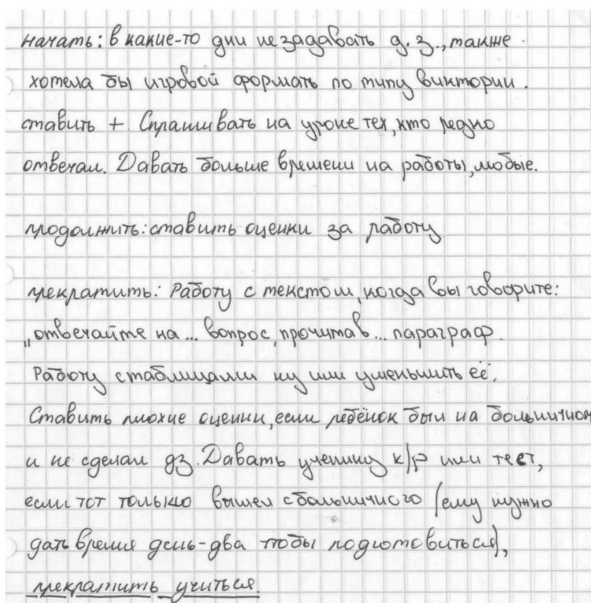 начать: в какие-то дни не задавать д.з., также
хотела бы игровой формать по типу виктории.
ставить + Спрашивать на уроке тех, кто редко
отвечал. Давать больше времени на работы, любые.
продолжить: ставить оценки за работу
прекратить: Работу с текстом, когда вы говорите:
„отвечайте на ... вопрос, прочитав ... параграф.
Работу с таблицами ну или уменьшить её.
Ставить плохие оценки, если ребёнок был на больничном
и не сделал дз. Давать ученику к/р или тест,
если тот только вышел с больничного (ему нужно
дать время день-два чтобы подготовиться),
прекратить учиться.